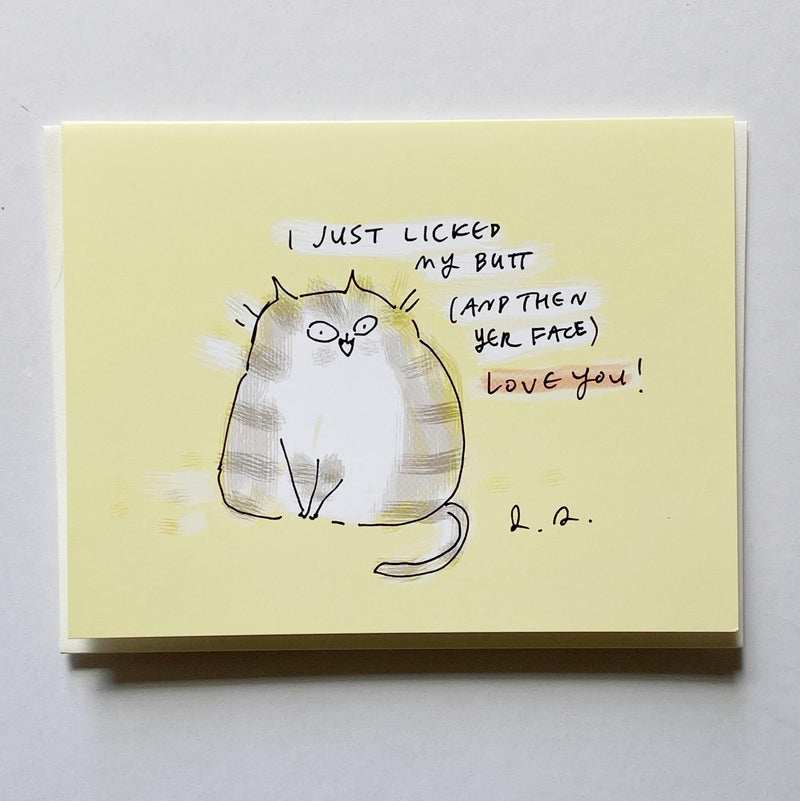 I JUST LICKED
MY BUTT
(AND THEN
YER FACE)
LOVE YOU!